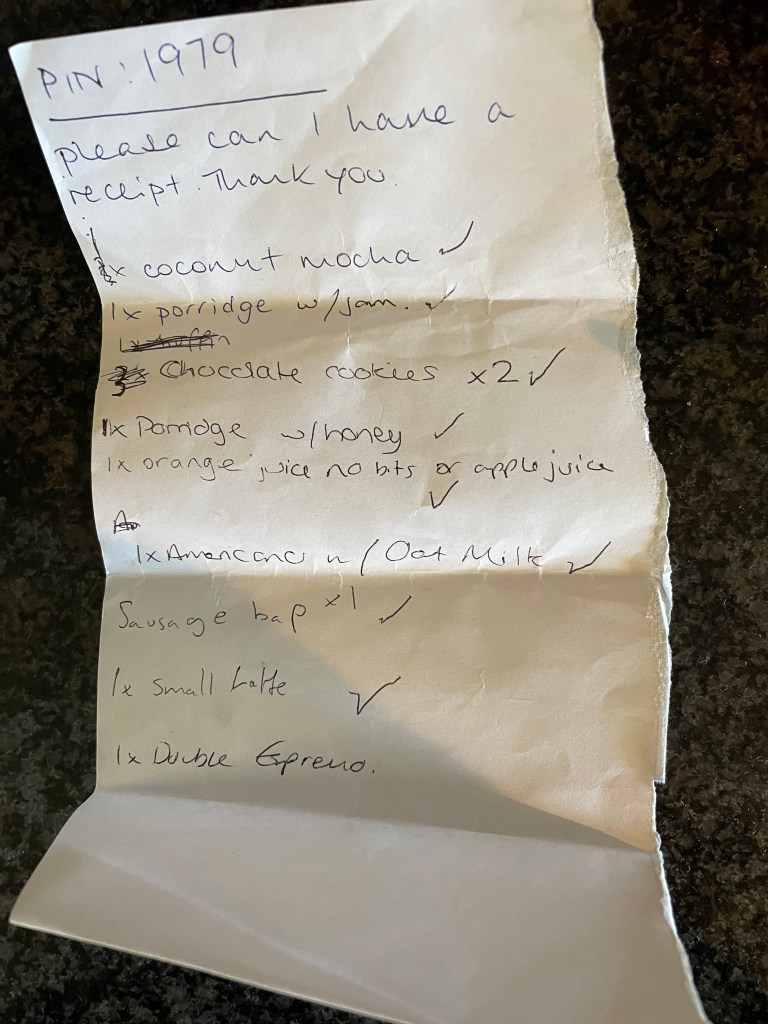 PIN: 1979
please can I have a
receipt. Thank you.
x coconut mocha ✓
1x porridge w/jam. ✓
Chocolate cookies x2 ✓
1x Porridge w/honey ✓
1x orange juice no bits or apple juice
✓
1x Americano w/ Oat Milk ✓
Sausage bap x1 ✓
1x Small Latte ✓
1x Double Espresso.